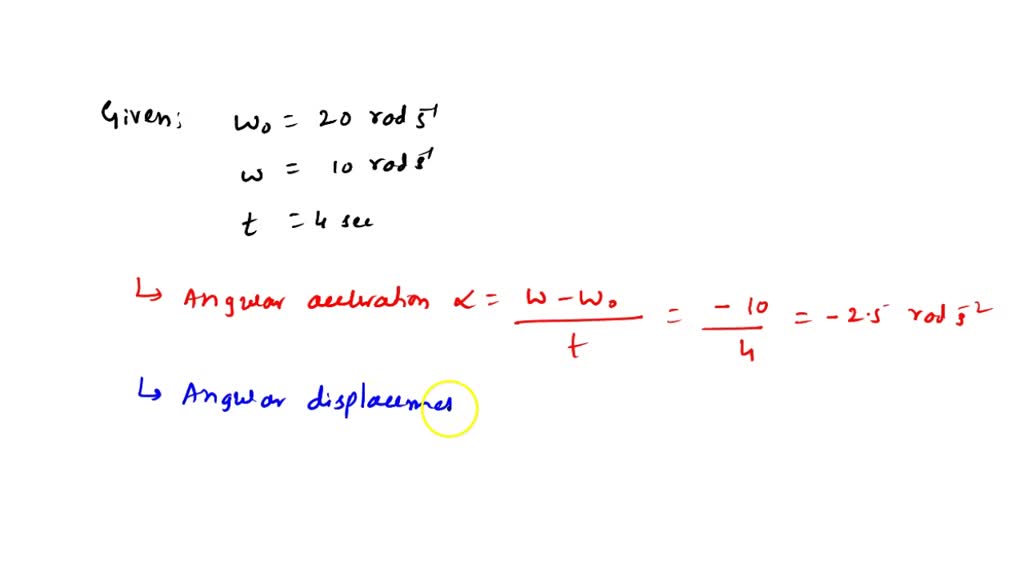 Given: ω₀ = 20 rad s⁻¹
ω = 10 rad s⁻¹
t = 4 sec
↳ Angular accleration α = (ω - ω₀)/t = -10/4 = -2.5 rad s⁻²
↳ Angular displacemen